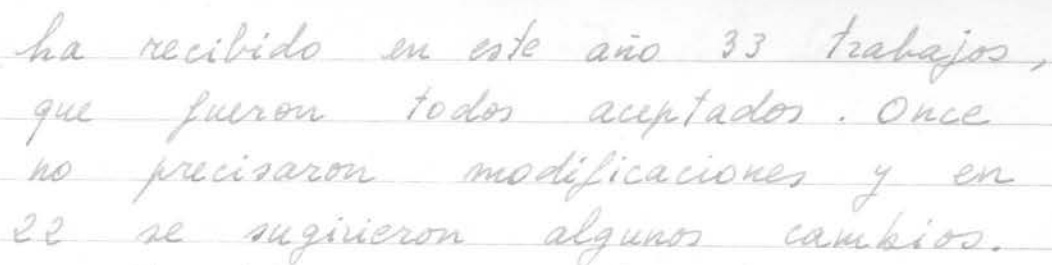 ha recibido en este año 33 trabajos,
que fueron todos aceptados. Once
no precisaron modificaciones y en
22 se sugirieron algunos cambios.